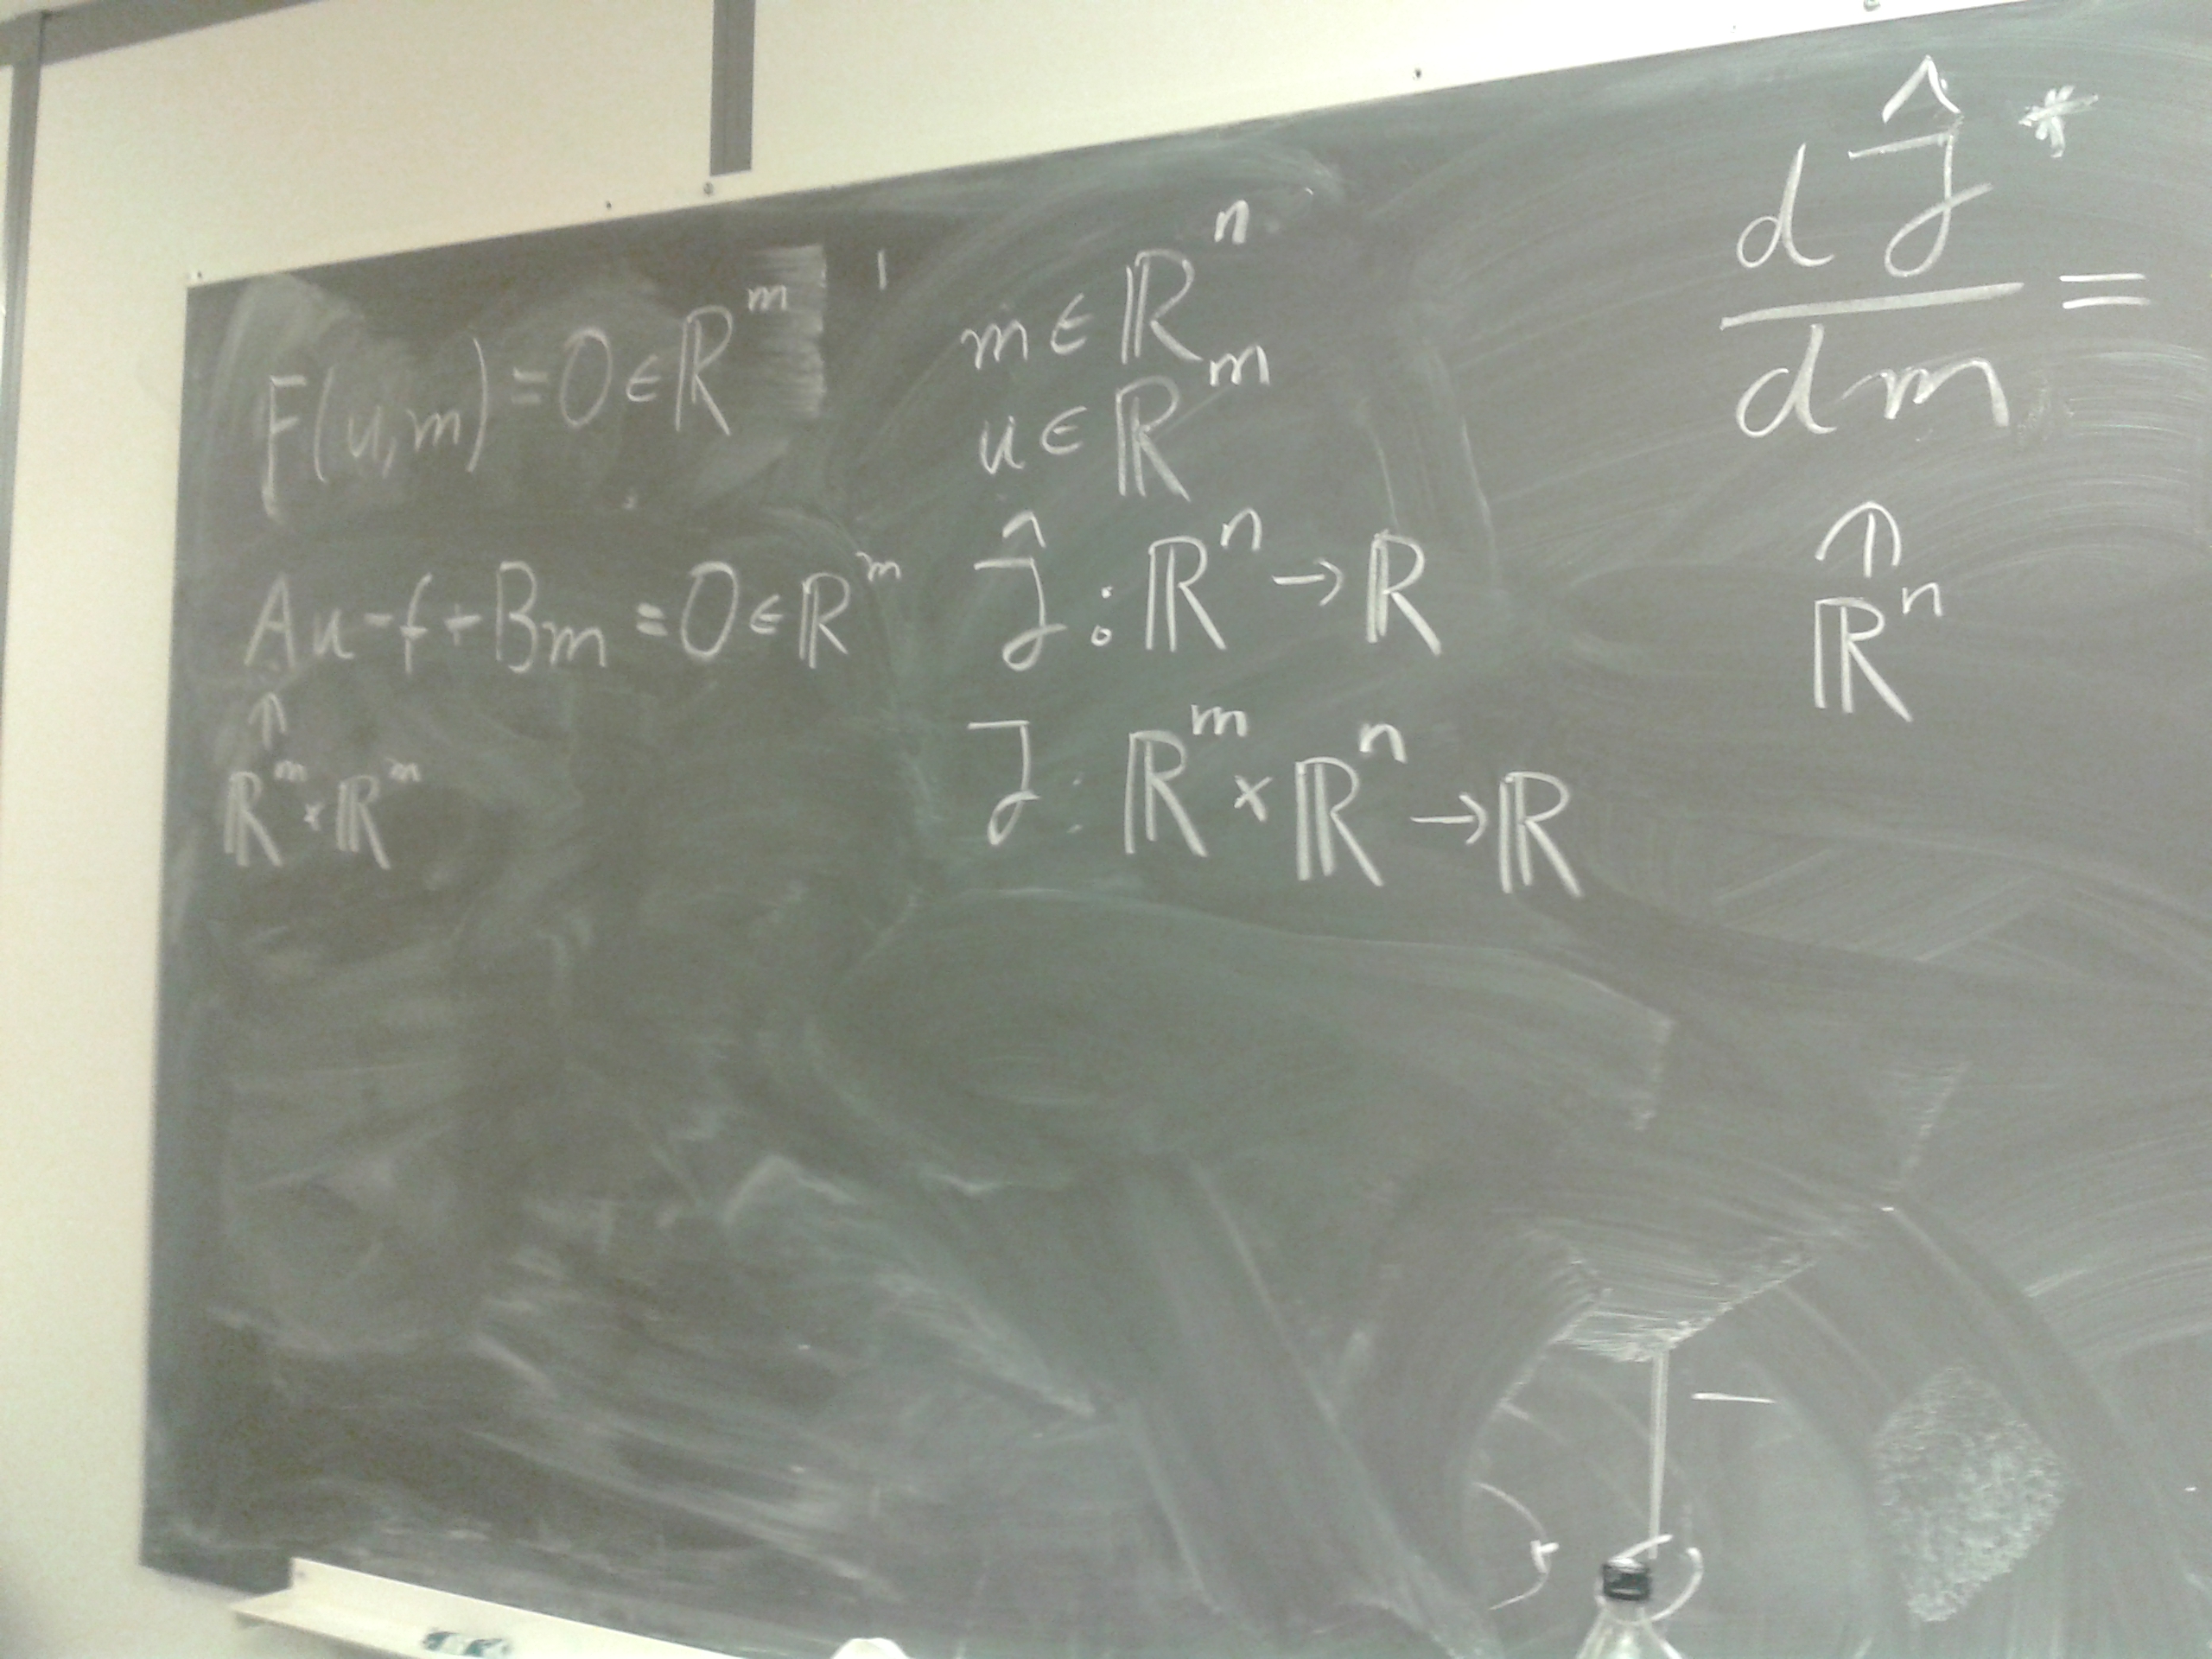 F(u,m) = 0 ∈ ℝ^m
Au - f + Bm = 0 ∈ ℝ^m
↑
ℝ^m × ℝ^m
m ∈ ℝ^n
u ∈ ℝ^m
Ĵ : ℝ^n → ℝ
J : ℝ^m × ℝ^n → ℝ
dĴ^* / dm =
↑
ℝ^n